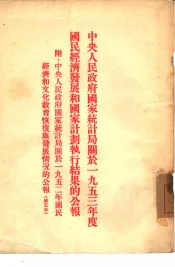 中央人民政府國家統計局關於一九五三年度
國民經濟發展和國家計劃執行結果的公報
附:中央人民政府國家統計局關於一九五二年國民
經濟和文化教育恢復與發展情況的公報